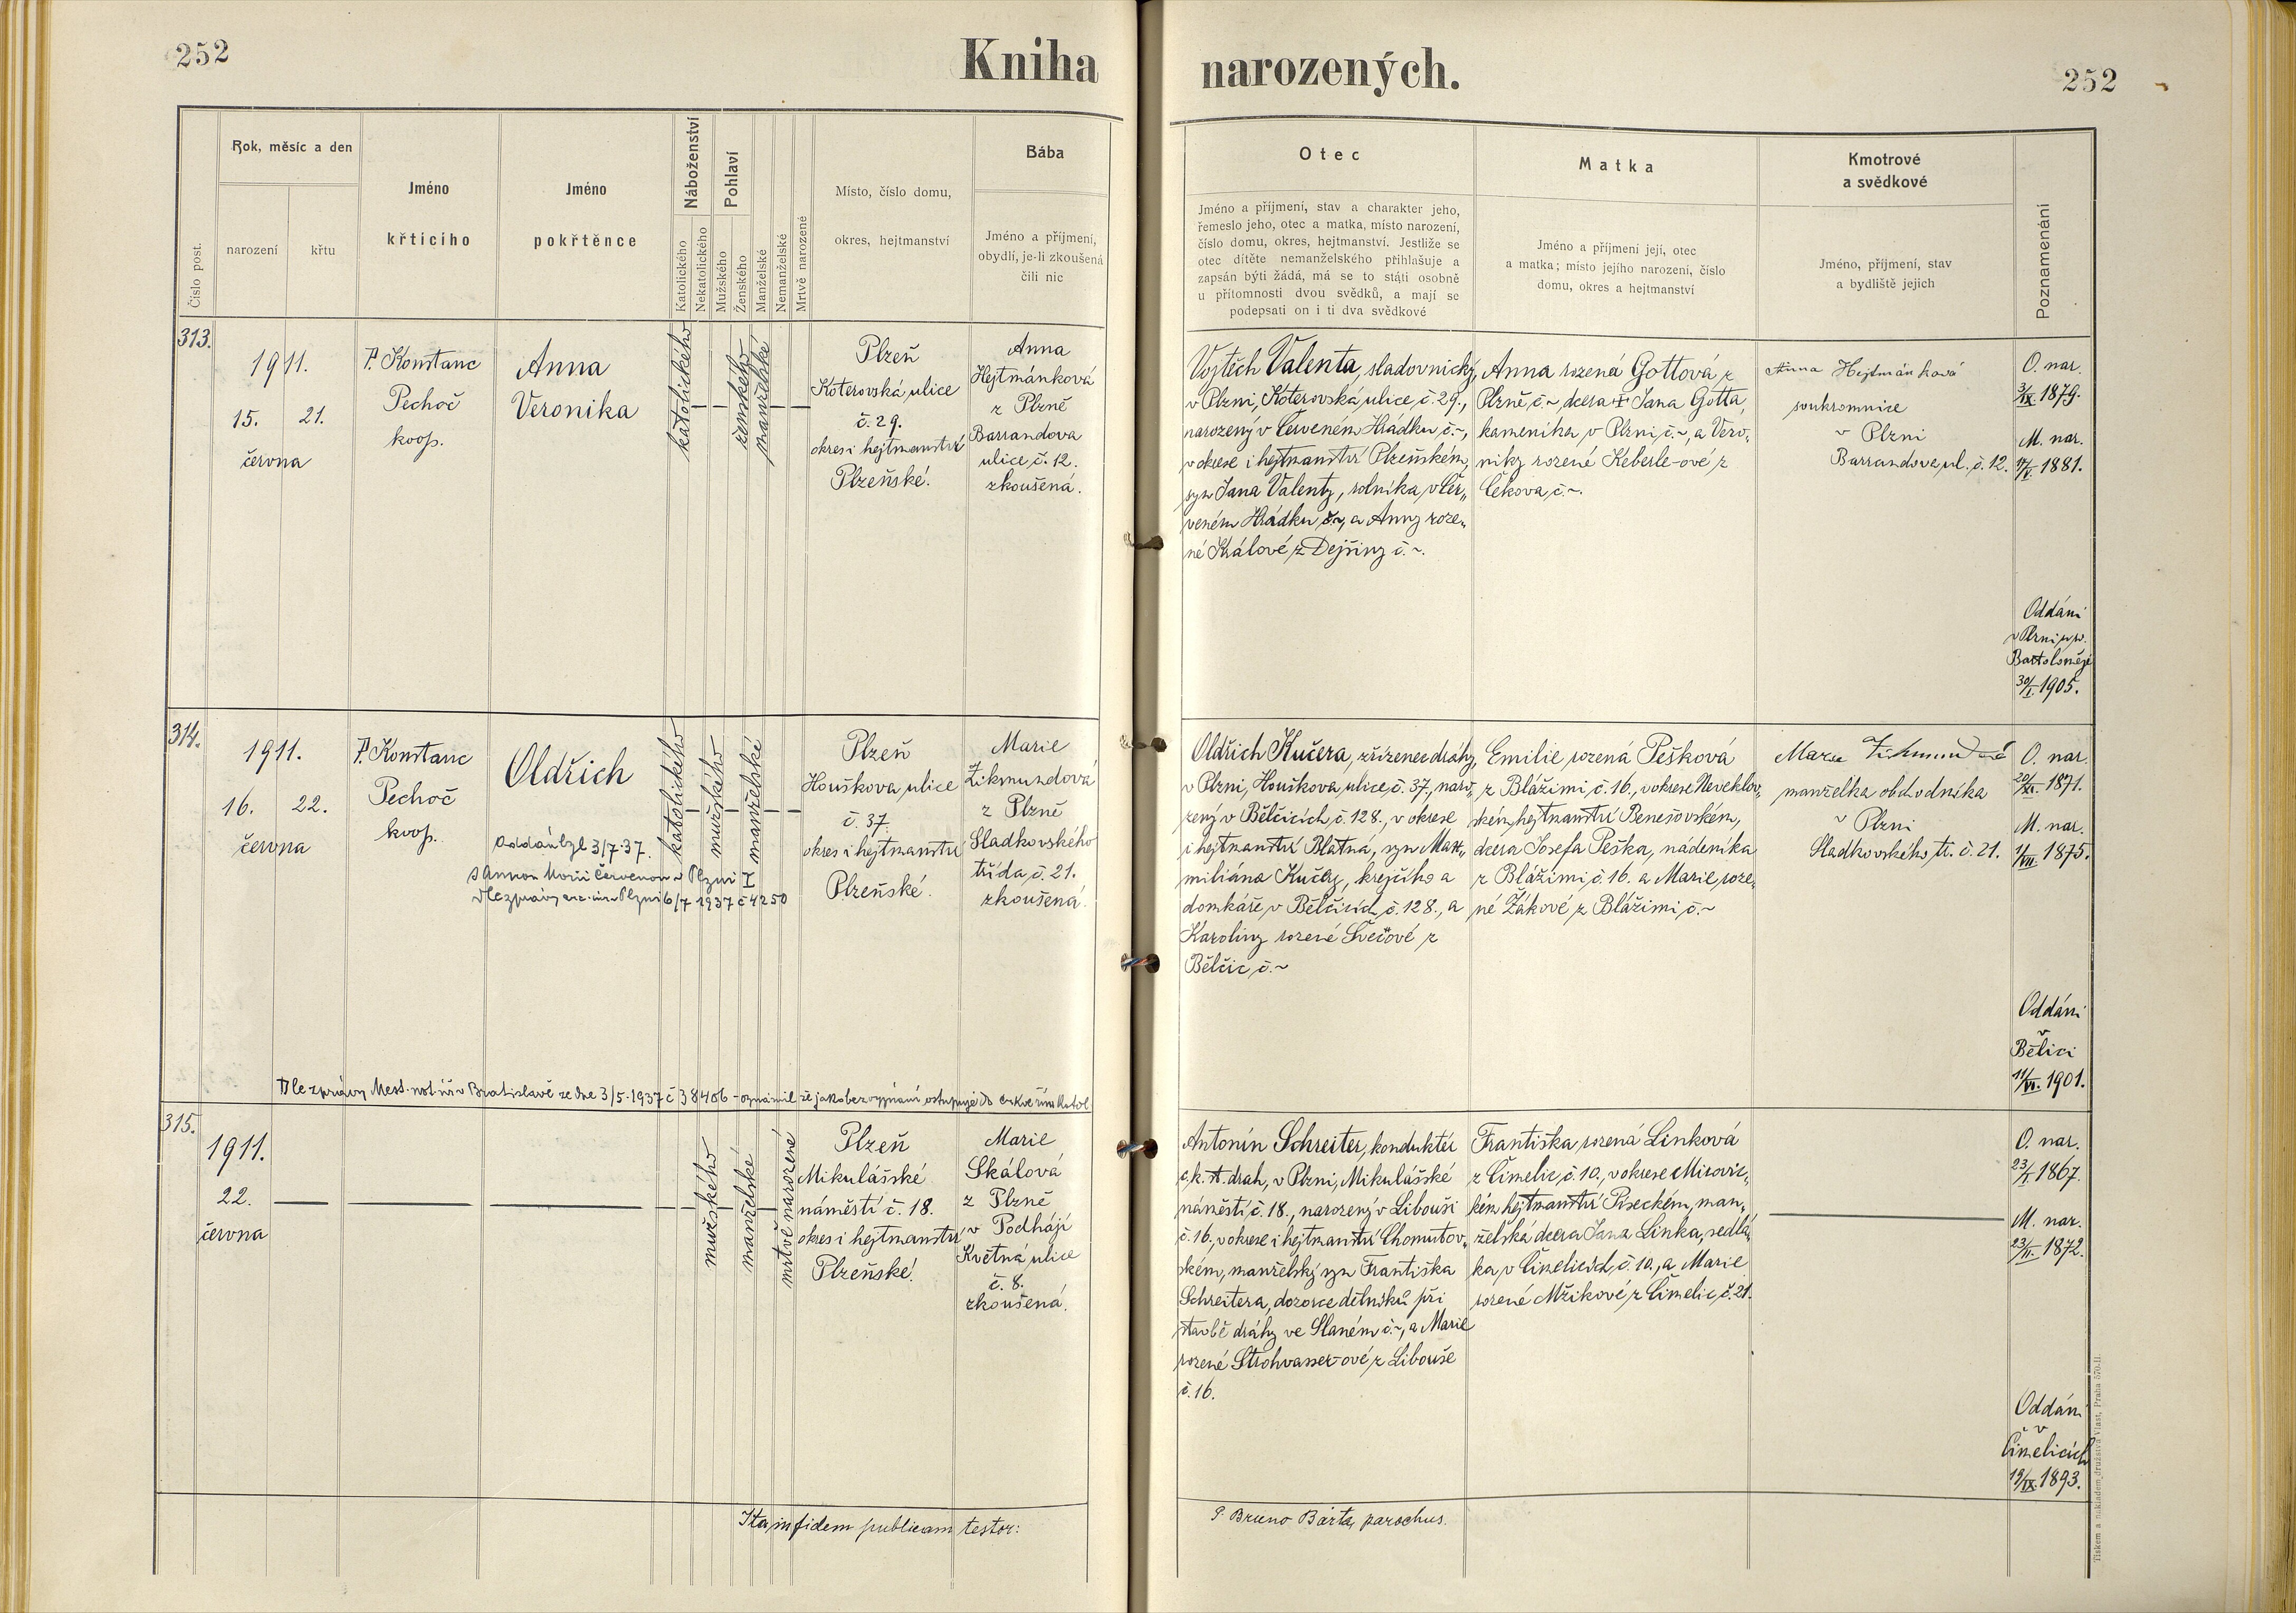 252
Kniha
narozených.
252
Číslo post.
Rok, měsíc a den
narození
křtu
Jméno
křtícího
Jméno
pokřtěnce
Náboženství
Katolického
Nekatolického
Pohlaví
Mužského
Ženského
Manželské
Nemanželské
Mrtvě narozené
Místo, číslo domu,
okres, hejtmanství
Bába
Jméno a příjmení,
obydlí, je-li zkoušená
čili nic
Otec
Jméno a příjmení, stav a charakter jeho,
řemeslo jeho, otec a matka, místo narození,
číslo domu, okres, hejtmanství. Jestliže se
otec dítěte nemanželského přihlašuje a
zapsán býti žádá, má se to státi osobně
u přítomnosti dvou svědků, a mají se
podepsati on i ti dva svědkové
Matka
Jméno a příjmení její, otec
a matka; místo jejího narození, číslo
domu, okres a hejtmanství
Kmotrové
a svědkové
Jméno, příjmení, stav
a bydliště jejich
Poznamenání
313.
1911.
15. 21.
června
P. Konstanc
Pechoč
koop.
Anna
Veronika
katolického
ženského
manželské
Plzeň
Koterovská ulice
č. 29.
okres i hejtmanství
Plzeňské.
Anna
Hejtmánková
z Plzně
Barrandova
ulice č. 12.
zkoušená.
Vojtěch Valenta, sladovnický
v Plzni, Koterovská ulice, č. 29.,
narozený v Červeném Hrádku č. ~,
v okrese i hejtmanství Plzeňském,
syn Jana Valenty, rolníka v Čer„
veném Hrádku č. ~, a Anny roze„
né Králové z Dejšiny č. ~.
Anna rozená Gottová z
Plzně č. ~, dcera † Jana Gotta,
kameníka v Plzni č. ~, a Vero„
niky rozené Keberle-ové z
Čekova, č. ~.
Anna Hejtmánková
soukromnice
v Plzni
Barrandova ul. č. 12.
O. nar.
3/IX. 1879.
M. nar.
17/V. 1881.
Oddáni
v Plzni u sv.
Bartoloměje
30/I. 1905.
314.
1911.
16. 22.
června
P. Konstanc
Pechoč
koop.
Oldřich
Oddán byl 3/7. 37.
s Annou Marií Červenou v Plzni I
Dle zprávy arc. úřa Plzni 6/7 1937 č 4250
katolického
mužského
manželské
Plzeň
Houškova ulice
č. 37.
okres i hejtmanství
Plzeňské.
Marie
Zikmundová
z Plzně
Sladkovského
třída, č. 21.
zkoušená.
Oldřich Kučera, zřízenec dráhy,
v Plzni, Houškova ulice, č. 37, naro„
zený v Bělčicích, č. 128., v okrese
i hejtmanství Blatná, syn Maxi„
miliána Kučery, krejčího a
domkáře v Bělčicích, č. 128., a
Karoliny rozené Ševčové z
Bělčic, č. ~
Emilie rozená Pešková
z Blážimi č. 16., v okrese Neveklov„
ském, hejtmanství Benešovském,
dcera Josefa Peška, nádeníka
z Blážimi, č. 16. a Marie roze„
né Žákové z Blážimi, č. ~
Marie Zikmundová
manželka obchodníka
v Plzni
Sladkovského tř. č. 21.
O. nar.
20/XI. 1871.
M. nar.
1/VII. 1875.
Oddáni
v
Bělici
11/VI. 1901.
Dle zprávy Mest. not. úř. v Bratislavě ze dne 3/5. 1937 č 38406 - oznámil že jako bez vyznání vstupuje do církve řím. katol
315.
1911.
22.
června
mužského
manželské
mrtvě narozené
Plzeň
Mikulášské
náměstí č. 18.
okres i hejtmanství
Plzeňské.
Marie
Skálová
z Plzně
v Podhájí
Květná ulice
č. 8.
zkoušená.
Antonín Schreiter, konduktér
c. k. st. drah, v Plzni, Mikulášské
náměstí č. 18., narozený v Libouši
č. 16., v okrese i hejtmanství Chomutov„
ském, manželský syn Františka
Schreitera, dozorce dělníků při
stavbě dráhy ve Slaném č. ~, a Marie
rozené Strohvasser-ové z Libouše
č. 16.
Františka rozená Linková
z Čimelic, č. 10., v okrese Mirovic„
kém hejtmanství Píseckém, man„
želská dcera Jana Linka, sedlá„
ka v Čimelicích, č. 10., a Marie
rozené Mžikové z Čimelic, č. 21.
O. nar.
23/I. 1867.
M. nar.
23/II. 1872.
Oddáni
v
Čimelicích
19/IX. 1893.
Ita in fidem publicam testor:
P. Bruno Bárta, parochus.
Tiskem a nákladem družstva Vlast, Praha 570-II.